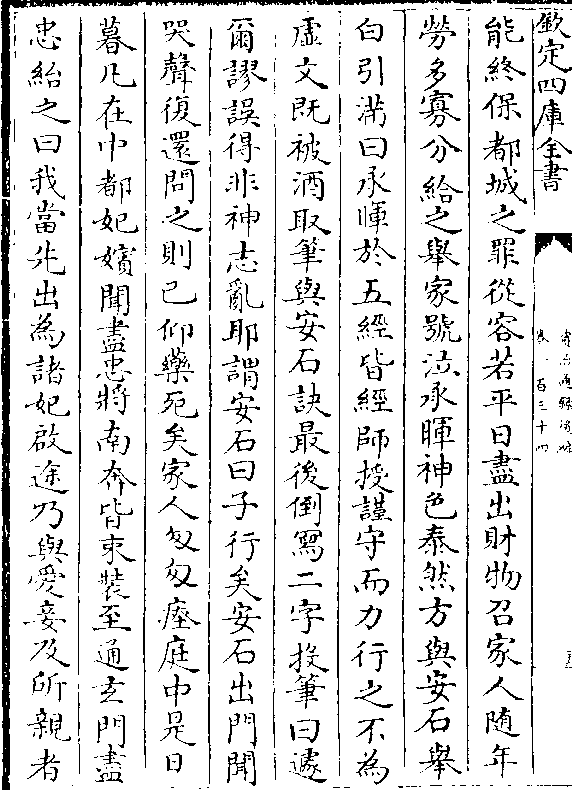 欽定四庫全書
能終保都城之罪從容若平日盡出財物召家人隨年
勞多寡分給之舉家號泣承暉神色泰然方與安石舉
白引滿曰承暉於五經皆經師授謹守而力行之不為
虛文既被酒取筆與安石訣最後倒寫二字投筆曰遽
爾謬誤得非神志亂耶謂安石曰子行矣安石出門聞
哭聲復還問之則已仰藥死矣家人匆匆瘞庭中是日
暮凡在中都妃嬪聞盡忠將南奔皆束裝至通玄門盡
忠紿之曰我當先出為諸妃啟途乃與愛妾及所親者